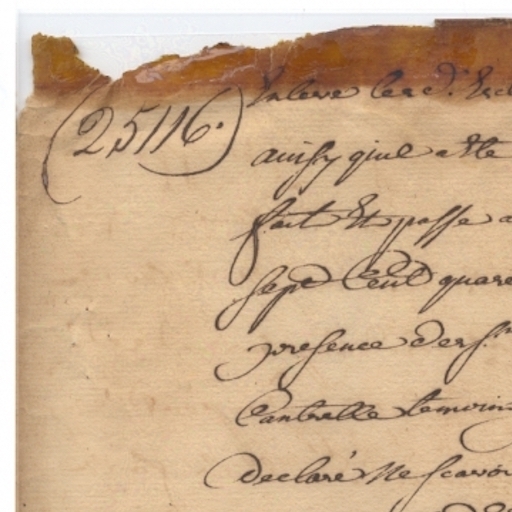 (25116.)
Enleve lesd.
aussy qu'il a ete
fait Et passe a
sept Cent quare
presence des s.rs
Cantrelle temoin
declaré Ne scavoir